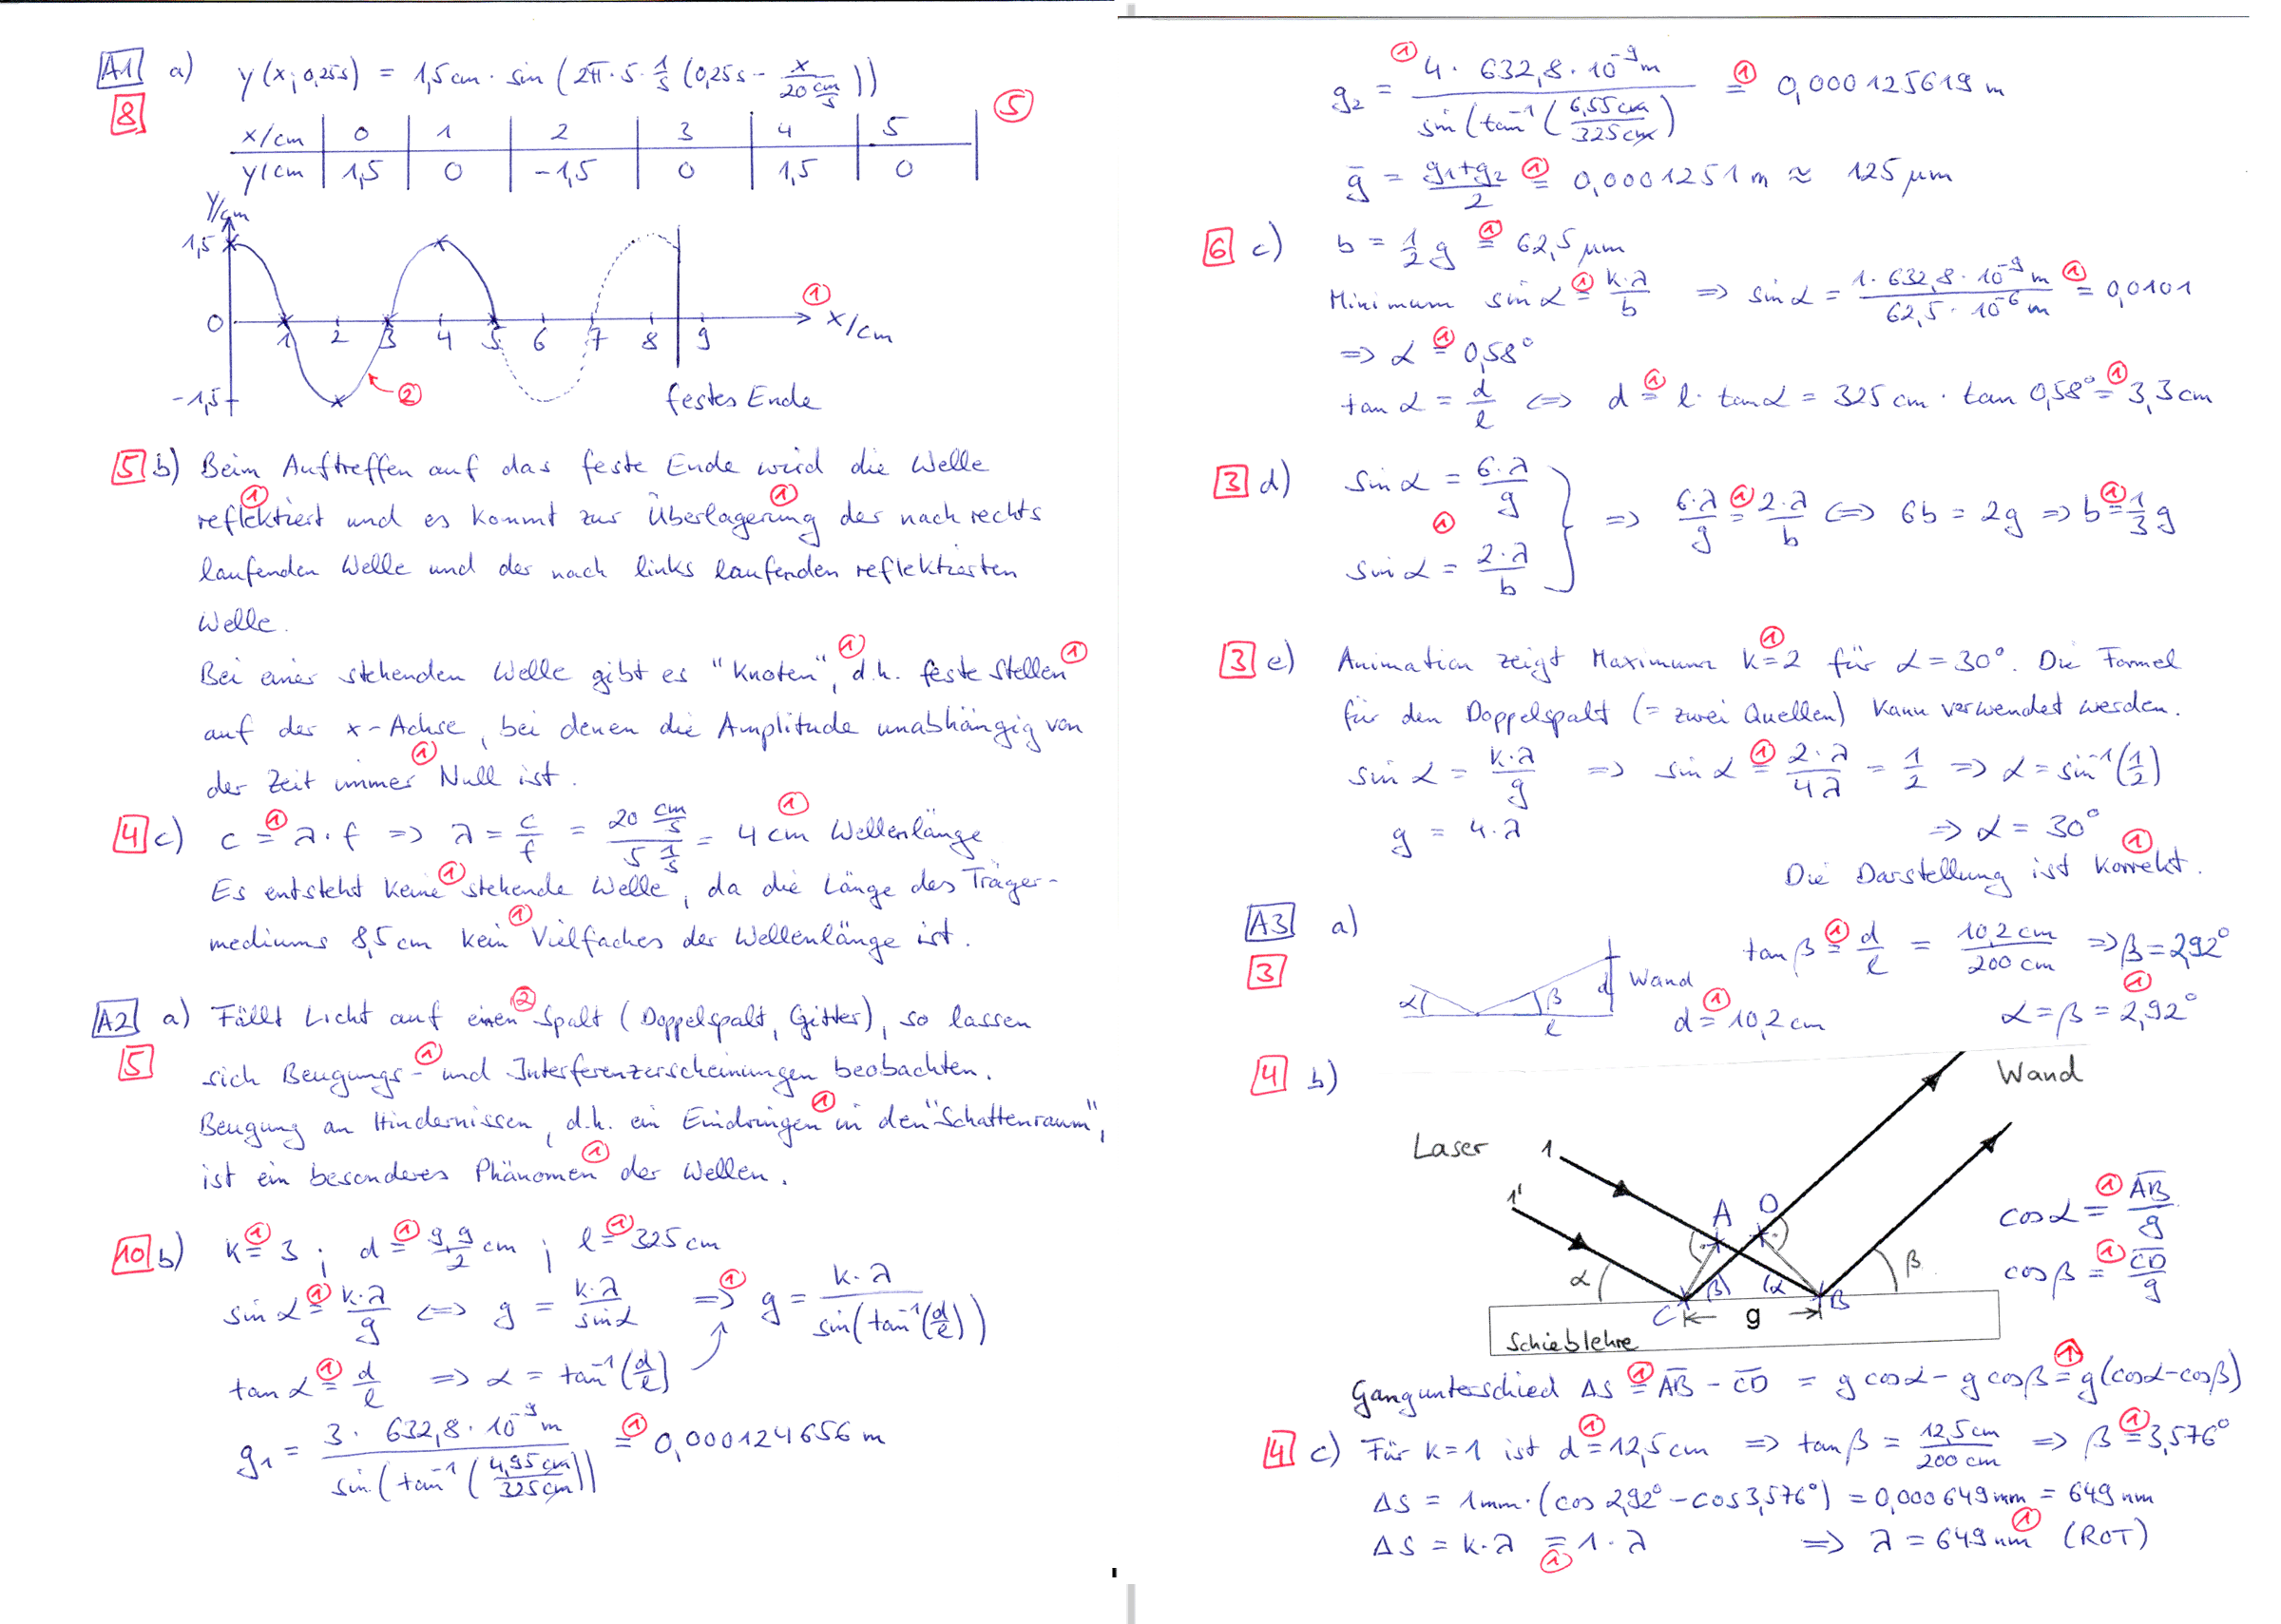 A1 a) y(x; 0,25s) = 1,5cm · sin (2π · 5 · 1/s (0,25s - x/(20 cm/s)))
8
x/cm | 0 | 1 | 2 | 3 | 4 | 5 | ⑤
y/cm | 1,5 | 0 | -1,5 | 0 | 1,5 | 0
Y/cm
1,5
① x/cm
0 1 2 3 4 5 6 7 8 9
-1,5 ② festes Ende
5 b) Beim Auftreffen auf das feste Ende wird die Welle
① ①
reflektiert und es kommt zur Überlagerung der nach rechts
laufenden Welle und der nach links laufenden reflektierten
Welle.
① ①
Bei einer stehenden Welle gibt es "Knoten", d.h. feste Stellen
auf der x-Achse, bei denen die Amplitude unabhängig von
①
der Zeit immer Null ist.
4 c) c =① λ · f => λ = c/f = (20 cm/s)/(5 1/s) = 4 cm① Wellenlänge
Es entsteht keine① stehende Welle, da die Länge des Träger-
mediums 8,5cm kein① Vielfaches der Wellenlänge ist.
A2 a) Fällt Licht auf einen② Spalt (Doppelspalt, Gitter), so lassen
5
sich Beugungs-① und Interferenzerscheinungen beobachten.
Beugung an Hindernissen, d.h. ein Eindringen① in den "Schattenraum",
ist ein besonderes Phänomen① der Wellen.
10 b) k =① 3 ; d =① 9,9/2 cm ; l =① 325 cm
sin α =① k·λ/g <=> g = k·λ/sin α =>① g = k·λ/sin(tan⁻¹(d/l))
tan α =① d/l => α = tan⁻¹(d/l)
g₁ = 3 · 632,8 · 10⁻⁹ m / sin(tan⁻¹(4,95cm/325cm)) =① 0,000124656 m
g₂ = ①4 · 632,8 · 10⁻⁹ m / sin(tan⁻¹(6,55cm/325cm)) =① 0,000125619 m
g̅ = (g₁+g₂)/2 =① 0,0001251 m ≈ 125 μm
6 c) b = 1/2 g =① 62,5 μm
Minimum sin α =① k·λ/b => sin α = 1 · 632,8 · 10⁻⁹ m / 62,5 · 10⁻⁶ m =① 0,0101
=> α =① 0,58°
tan α = d/l <=> d =① l · tan α = 325 cm · tan 0,58° =① 3,3 cm
3 d) sin α = 6·λ/g
① => 6·λ/g =① 2·λ/b <=> 6b = 2g => b =① 1/3 g
sin α = 2·λ/b
3 e) Animation zeigt Maximum k =① 2 für α = 30°. Die Formel
für den Doppelspalt (= zwei Quellen) kann verwendet werden.
sin α = k·λ/g => sin α =① 2·λ/4λ = 1/2 => α = sin⁻¹(1/2)
g = 4·λ => α = 30°
①
Die Darstellung ist korrekt.
A3 a) tan β =① d/l = 10,2 cm/200 cm => β = 2,92°
3
α β l d Wand d =① 10,2 cm α = β =① 2,92°
4 b) Wand
Laser 1
1'
A D cos α =① A̅B̅/g
α β α β cos β =① C̅D̅/g
C g B
Schieblehre
Gangunterschied Δs =① A̅B̅ - C̅D̅ = g cos α - g cos β =① g(cosα-cosβ)
4 c) Für k=1 ist d =① 12,5cm => tan β = 12,5cm/200 cm => β =① 3,576°
Δs = 1mm · (cos 2,92° - cos 3,576°) = 0,000649mm = 649 nm
Δs = k·λ =① 1·λ => λ = 649 nm① (ROT)